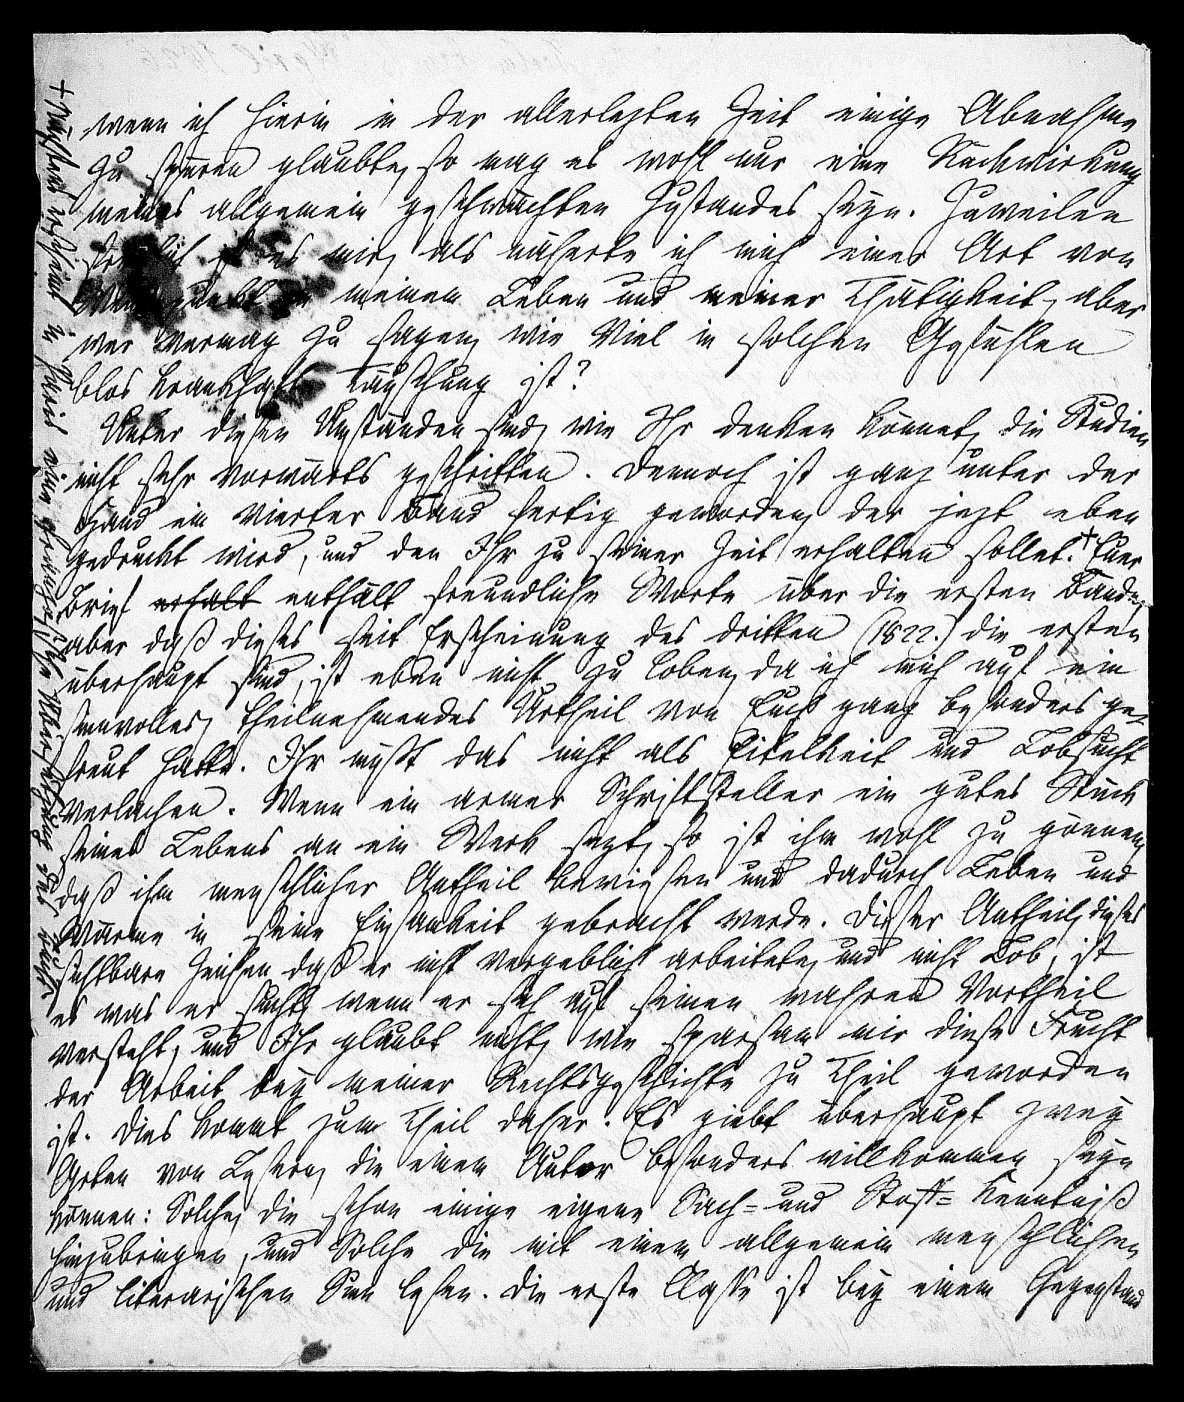 wenn ich hierin in der allerlezten Zeit einige Abnahme
zu spüren glaubte, so mag es wohl nur eine Nachwirkung
meines allgemein geschwächten Zustandes seyn. Zuweilen
freylich ist es mir, als näherte ich mich einer Art von
Wendepunkt in meinem Leben und meiner Thätigkeit, aber
wer vermag zu sagen, wie Viel in solchen Gefühlen
blos krankhafte Täuschung ist?
Unter diesen Umständen sind, wie Ihr denken könnet, die Studien
nicht sehr vorwärts geschritten. Dennoch ist ganz unter der
Hand ein vierter Band fertig geworden, der jezt eben
gedruckt wird, und den Ihr zu seiner Zeit erhalten sollet.+ Euer
Brief erhalt enthält freundliche Worte über die ersten Bände,
aber daß dieses seit Erscheinung des dritten (1822.) die ersten
überhaupt sind, ist eben nicht zu loben, da ich mich auf ein
sinnvolles, theilnehmendes Urtheil von Euch ganz besonders ge-
freut hatte. Ihr müßt das nicht als Eitelkeit und Lobsucht
verlachen. Wenn ein armer Schriftsteller ein gutes Stück
seines Lebens an ein Werk sezt, so ist ihm wohl zu gönnen,
daß ihm menschlicher Antheil bewiesen und dadurch Leben und
Wärme in seine Einsamkeit gebracht werde. Dieser Antheil, dieses
sichtbare Zeichen daß er nicht vergeblich arbeitete, und nicht Lob, ist
es was er sucht, wenn er sich auf seinen wahren Vortheil
versteht, und Ihr glaubt nicht, wie sparsam mir diese Frucht
der Arbeit bey meiner Rechtsgeschichte zu Theil geworden
ist. Dies kommt zum Theil daher. Es giebt überhaupt zwey
Arten von Lesern, die einem Autor besonders willkommen seyn
können: Solche, die schon einige eigene Sach- und Stoff-Kenntniß
hinzubringen, und Solche die mit einem allgemein menschlichen
und literarischen Sinn lesen. Die erste Classe ist bey einem Gegenstand
+ in Paris eine